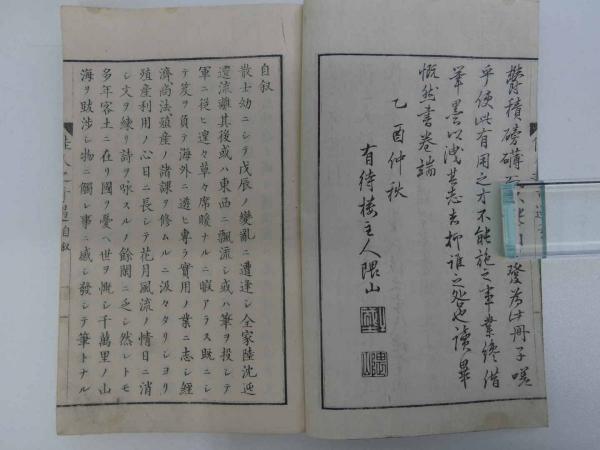 鬱積磅礴發為此冊子嗟
乎使此有用之才不能施之事業終借
筆墨以洩其志者抑誰之也讀畢
慨然書卷端
乙酉仲秋
有待樓主人隈山
自叙
散士幼ニシテ戊辰ノ變亂ニ遭逢シ全家陸沈迍
邅流離其後或ハ東西ニ飄流シ或ハ筆ヲ投シテ
軍ニ從ヒ遑々草々席暖ナルニ暇アラス既ニシ
テ笈ヲ負テ海外ニ遊ヒ專ラ實用ノ業ニ志シ經
濟商法殖産ノ諸課ヲ修ムルニ汲々タリシヨリ
殖産利用ノ心日ニ長シテ花月風流ノ情日ニ消
シ文ヲ練リ詩ヲ咏スルノ餘閑ニ乏シ然レトモ
多年客土ニ在リ國ヲ憂ヘ世ヲ慨シ千萬里ノ山
海ヲ跋涉シ物ニ觸レ事ニ感シ發シテ筆トナル
自叙